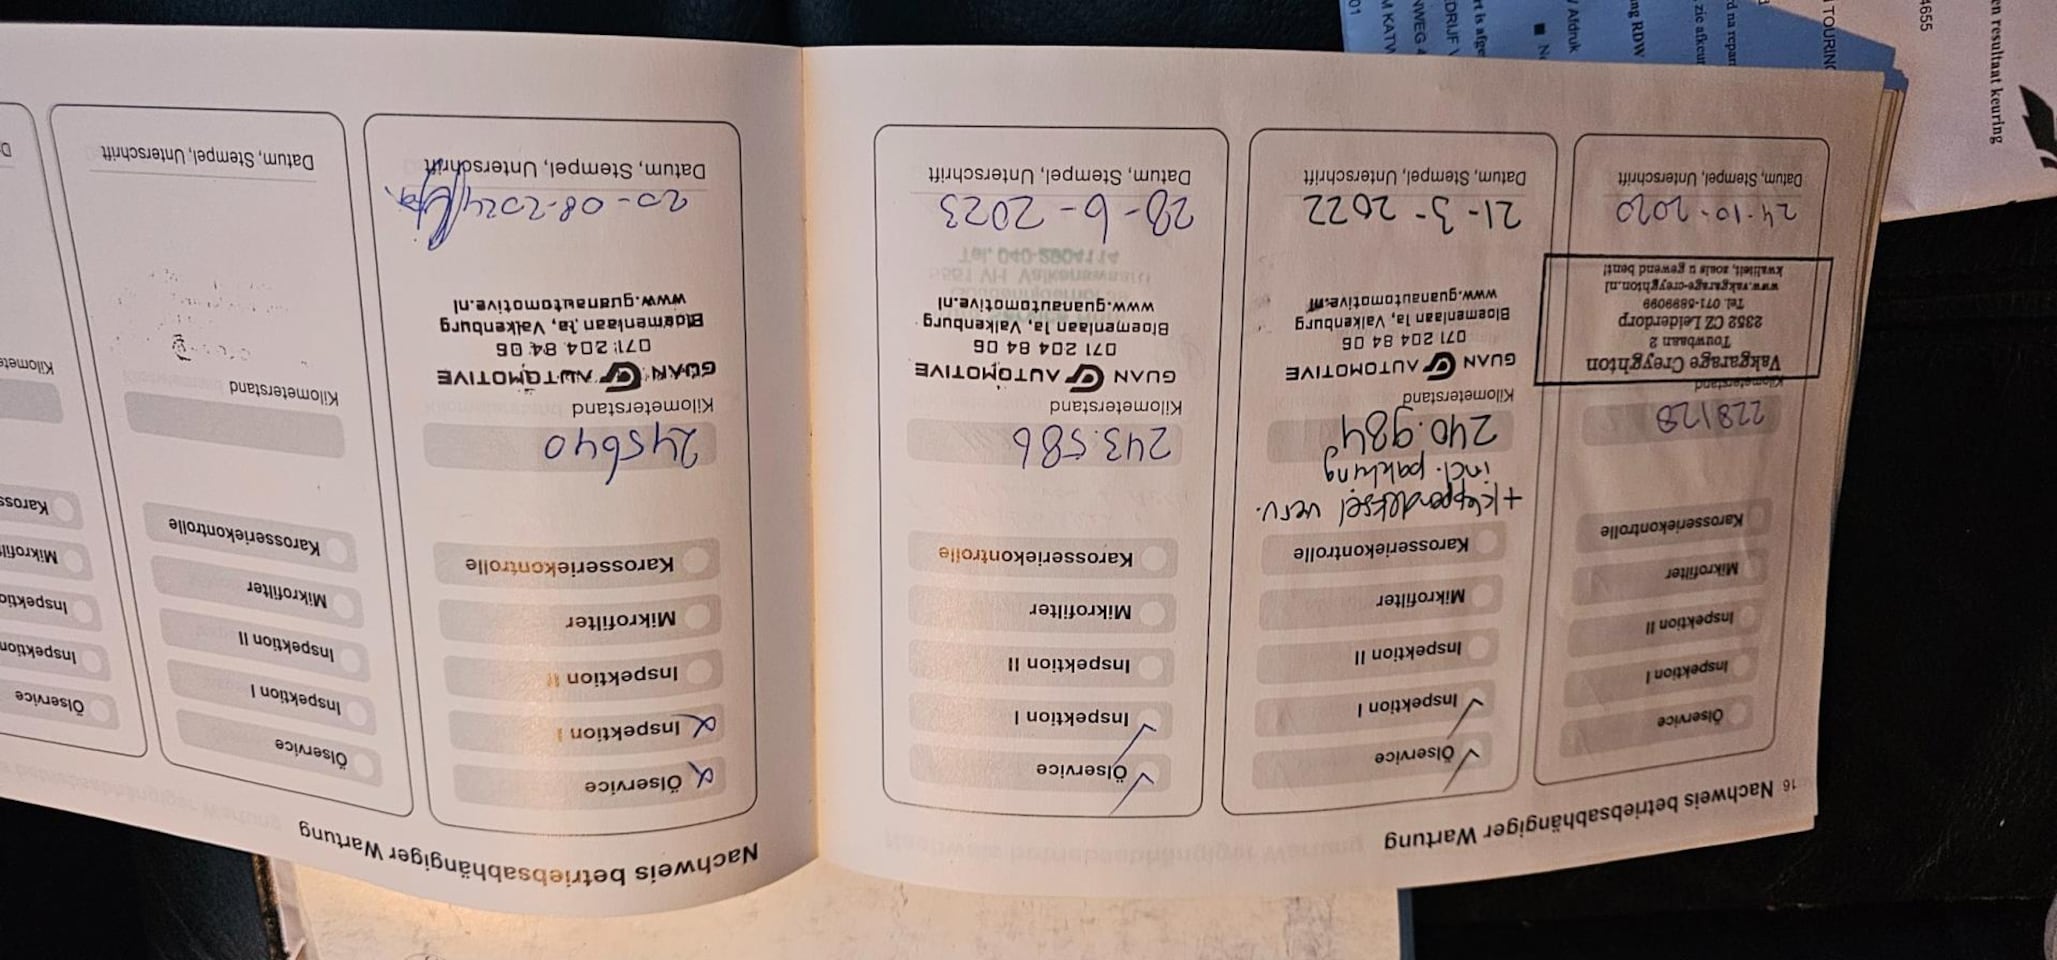 16 Nachweis betriebsabhängiger Wartung
Ölservice
Inspektion I
Inspektion II
Mikrofilter
Karosseriekontrolle
228128
Kilometerstand
Vakgarage Creyghton
Touwbaan 2
2352 CZ Leiderdorp
Tel. 071-5899099
www.vakgarage-creyghton.nl
kwaliteit, zoals u gewend bent!
24-10-2020
Datum, Stempel, Unterschrift
Ölservice
Inspektion I
Inspektion II
Mikrofilter
Karosseriekontrolle
+kleppendeksel verv.
incl. pakking
240.984
Kilometerstand
GUAN AUTOMOTIVE
071 204 84 06
Bloemenlaan 1a, Valkenburg
www.guanautomotive.nl
21-3-2022
Datum, Stempel, Unterschrift
Ölservice
Inspektion I
Inspektion II
Mikrofilter
Karosseriekontrolle
243.586
Kilometerstand
GUAN AUTOMOTIVE
071 204 84 06
Bloemenlaan 1a, Valkenburg
www.guanautomotive.nl
Tel. 040-2904114
28-6-2023
Datum, Stempel, Unterschrift
Nachweis betriebsabhängiger Wartung
Ölservice
Inspektion I
Inspektion II
Mikrofilter
Karosseriekontrolle
245640
Kilometerstand
GUAN AUTOMOTIVE
071 204 84 06
Bloemenlaan 1a, Valkenburg
www.guanautomotive.nl
20-08-2024
Datum, Stempel, Unterschrift
Ölservice
Inspektion I
Inspektion II
Mikrofilter
Karosseriekontrolle
Kilometerstand
Datum, Stempel, Unterschrift
Ölservice
Inspektion
Inspektio
Mikrofil
Kaross
Kilomete
D
en resultaat keuring
4655
TOURING
d na repar
zie afkeur
ng RDW
/ Afdruk
rt is afge
DRIJF V
NWEG 4
M KATW
01